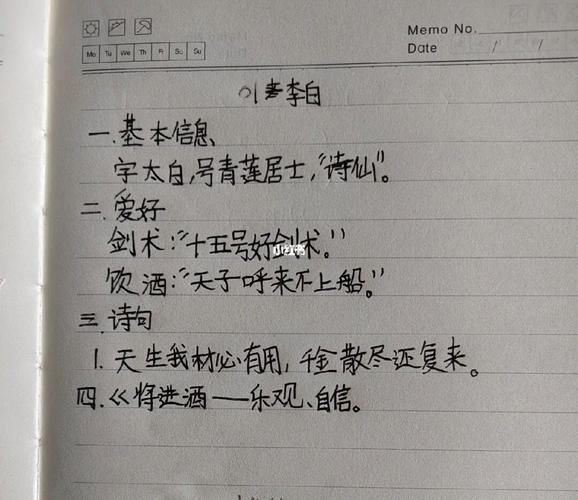 Memo No.
Mo Tu We Th Fr Sa Su
Date / /
01李白
一.基本信息
字太白,号青莲居士,"诗仙"。
二.爱好
剑术:"十五号好剑术。"
小红书
饮酒:"天子呼来不上船。"
三.诗句
1.天生我材必有用,千金散尽还复来。
四.《将进酒——乐观、自信。